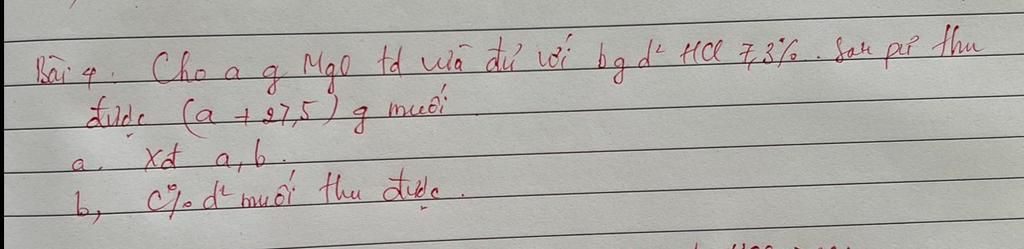 Bài 4. Cho a g MgO td vừa đủ với b g d² HCl 7,3%. Sau pứ thu
được (a + 27,5) g muối
a. Xđ a, b.
b, C% d² muối thu được.